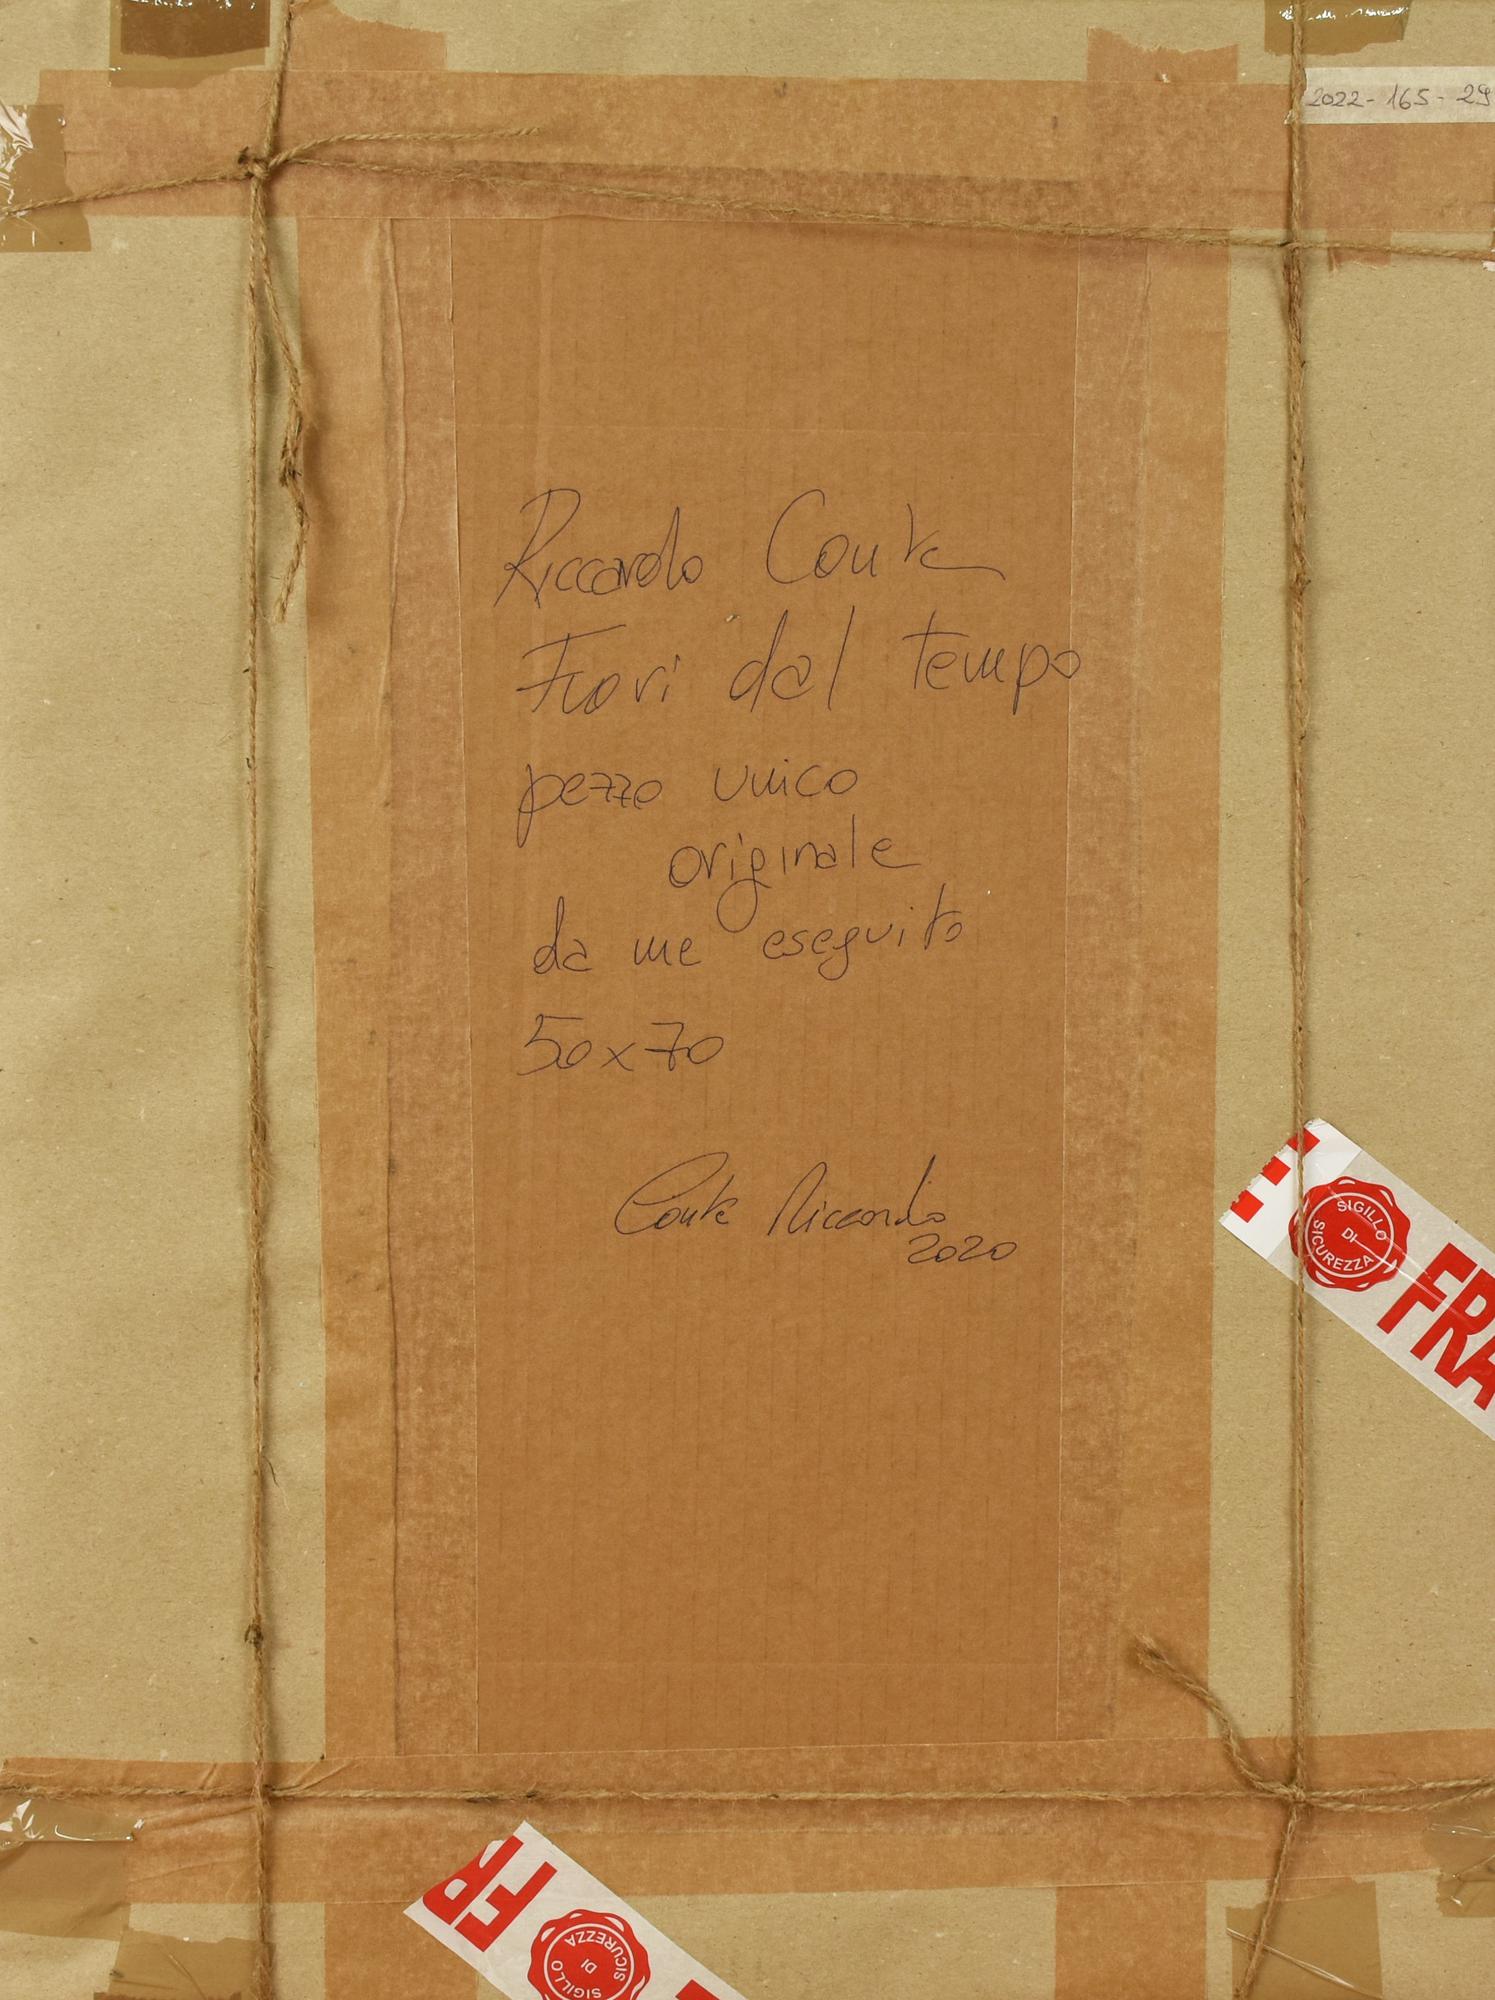 2022-165-29
Riccardo Conte
Fuori dal tempo
pezzo unico
originale
da me eseguito
50x70
Conte Riccardo
2020
SIGILLO DI SICUREZZA
FRA
FR
SIGILLO DI SICUREZZA